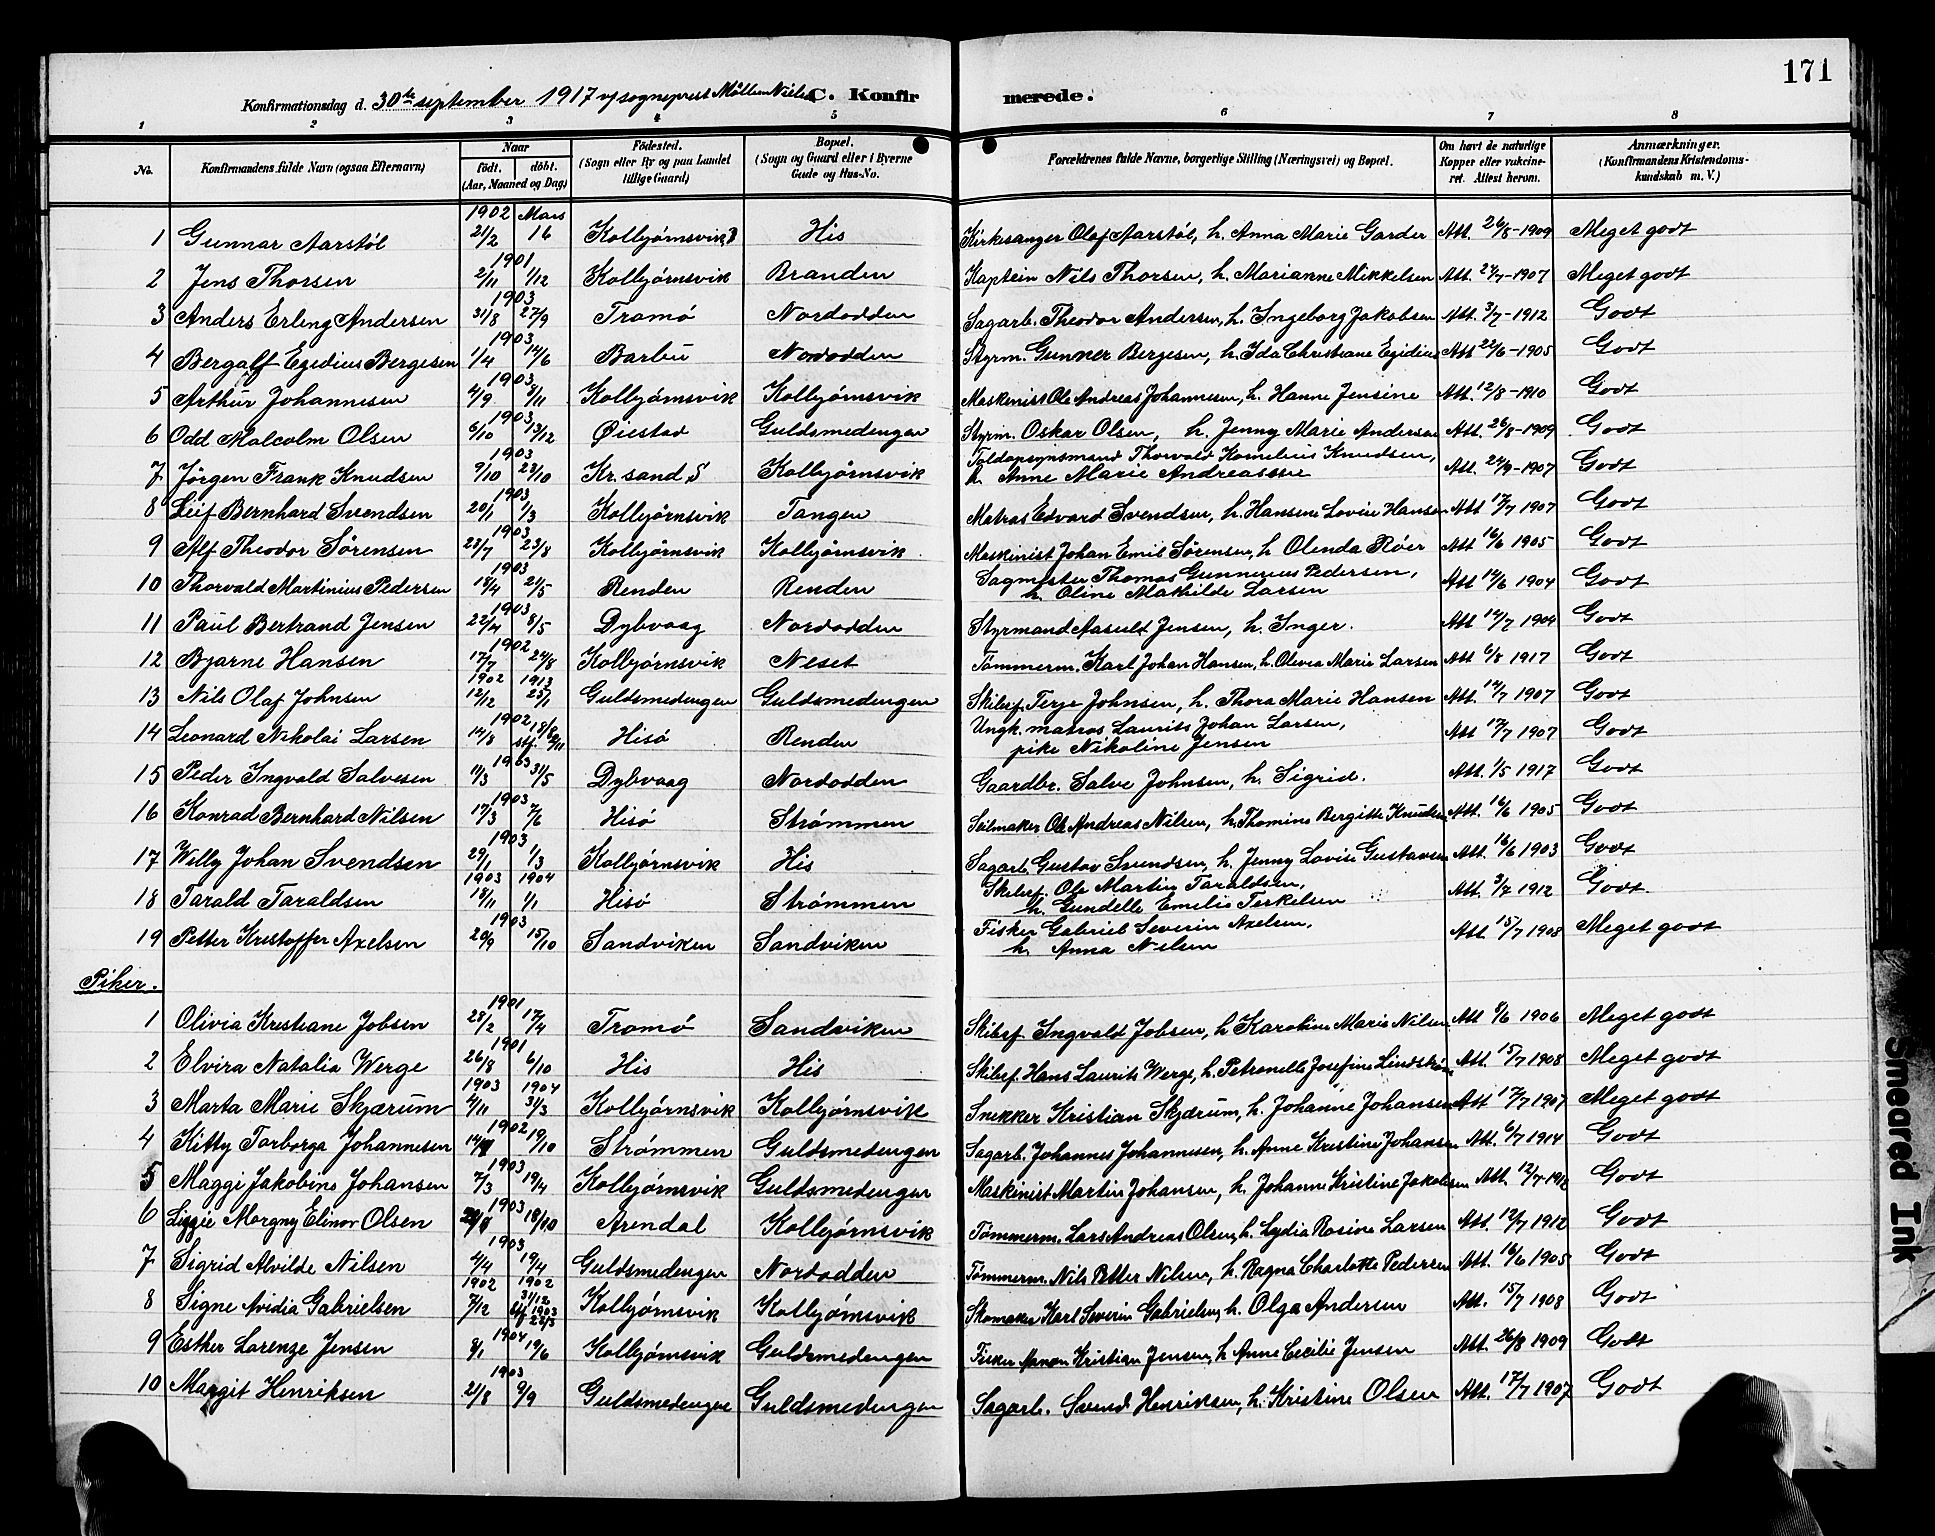 171
Konfirmationsdag d. 30te september 1917 v/ sogneprest Möller Nielsen C. Konfir merede.
1 2 3 4 5 6 7 8
No. Konfirmandens fulde Navn (ogsaa Efternavn) Naar født, døbt. (Aar, Maaned og Dag) Fødested. (Sogn eller By og paa Landet tillige Gaard) Bopæl. (Sogn og Gaard eller i Byerne Gade og Hus-No. Forældrenes fulde Navne, borgerlige Stilling (Næringsvei) og Bopæl. Om havt de naturlige Kopper eller vakcineret. Attest herom. Anmærkninger. (Konfirmandens Kristendomskundskab m. V.)
1 Gunnar Aarstöl 1902 21/2 Mars 16 Kolbjörnsvik His Kirkesanger Olaf Aarstöl, h. Anna Marie Garder Att. 26/8-1909 Meget godt
2 Jens Thorsen 1901 2/11 1/12 Kolbjörnsvik Branden Kaptein Nils Thorsen, h. Marianne Mikkelsen Att. 24/7-1907 Meget godt
3 Anders Erling Andersen 1903 31/8 27/9 Tromö Nordodden Sagarb. Theodor Andersen, h. Ingeborg Jakobsen Att. 3/7-1912 Godt
4 Bergalf Egidius Bergesen 1903 1/4 14/6 Barbu Nordodden Styrm. Gunner Bergesen, h. Ida Christiane Egidius Att 22/6-1905 Godt
5 Arthur Johannesen 1903 4/9 8/11 Kolbjörnsvik Kolbjörnsvik Maskinist Ole Andreas Johannesen, h. Hanne Jensine Att. 12/8-1910 Godt
6 Odd Malcolm Olsen 1903 6/10 13/12 Öiestad Guldsmedengen Styrm. Oskar Olsen, h. Jenny Marie Andersen Att. 26/8-1909 Godt
7 Jörgen Frank Knudsen 1903 9/10 23/10 Kr.sand S Kolbjörnsvik Toldopsynsmand Thorvald Kornelius Knudsen, h. Anne Marie Andreassen Att. 24/9-1907 Godt
8 Leif Bernhard Svendsen 1903 20/1 1/3 Kolbjörnsvik Tangen Matros Edvard Svendsen, h. Hansine Lovise Hansen Att 17/7 1907 Godt
9 Alf Theodor Sörensen 1903 23/7 23/8 Kolbjörnsvik Kolbjörnsvik Maskinist Johan Emil Sörensen, h Olenda Röer Att 16/6 1905 Godt
10 Thorvald Martinius Pedersen 1903 18/4 21/5 Renden Renden Sagmester Thomas Gunnerius Pedersen, h. Oline Mathilde Larsen Att 14/6 1904 Godt
11 Paul Bertrand Jensen 1903 22/4 8/5 Dybvaag Nordodden Styrmand Aasult Jensen, h. Inger. Att 14/7 1904 Godt
12 Bjarne Hansen 1902 17/7 24/8 Kolbjörnsvik Neset Tömmerm. Karl Johan Hansen, h. Olevia Marie Larsen Att 6/8 1917 Godt
13 Nils Olaf Johnsen 1902 12/12 1913 25/1 Guldsmedengen Guldsmedengen Skibsf. Terje Johnsen, h. Thora Marie Hansen Att. 14/7 1907 Godt
14 Leonard Nikolai Larsen 1902 14/8 18/8 stf. 2/11 Hisö Renden Ungk. matros Laurits Johan Larsen, pike Nikoline Jensen Att 17/7 1907 Godt
15 Peder Ingvald Salvesen 1903 11/3 31/5 Dybvaag Nordodden Gaardbr. Salve Johnsen, h. Sigrid. Att. 1/5 1917 Godt
16 Konrad Bernhard Nilsen 1903 17/3 7/6 Hisö Strömmen Seilmaker Ole Andreas Nilsen, h. Thomine Bergitte Knudsen Att. 16/6 1905 Godt
17 Willy Johan Svendsen 1903 29/1 1/3 Kolbjörnsvik His Sagarb. Gustav Svendsen, h. Jenny Lovise Gustavsen Att. 16/6 1903 Godt
18 Tarald Taraldsen 1903 18/11 1904 1/1 Hisö Strömmen Skibsf. Ole Martin Taraldsen, h. Gundelle Emilie Terkelsen Att. 3/7 1912 Godt.
19 Petter Kristoffer Axelsen 1903 20/9 15/10 Sandviken Sandviken Fisker Gabriel Severin Axelsen, h. Anna Nilsen Att. 15/7 1908 Meget godt
Piker.
1 Olivia Kristiane Jobsen 1901 28/2 17/4 Tromö Sandviken Skibsf. Ingvald Jobsen, h Karoline Marie Nilsen Att 8/6 1906 Meget godt
2 Elvira Natalia Werge 1901 26/8 6/10 His His Skibsf. Hans Laurits Werge, h. Petronelle Josefine Lindström Att. 15/7 1908 Meget godt
3 Marta Marie Skjærum 1903 4/11 1904 31/3 Kolbjörnsvik Kolbjörnsvik Snekker Kristian Skjærum, h. Johanne Johansen Att 17/7 1907 Meget godt
4 Kitty Torborga Johannesen 1902 19/10 Strömmen Guldsmedengen Sagarb. Johannes Johannesen, h. Anne Kristine Johansen Att. 6/7 1914 Godt
5 Maggi Jakobine Johansen 1903 7/3 19/4 Kolbjörnsvik Guldsmedengen Maskinist Martin Johansen, h. Johanne Kristine Jakobsen Att. 12/7-1912 Godt
6 Lizzie Morgny Elinor Olsen 1903 18/10 Arendal Kolbjörnsvik Tömmerm. Lars Andreas Olsen, h. Lydia Rosine Larsen Att. 12/7 1912 Godt
7 Sigrid Alvilde Nilsen 1903 4/4 19/4 Guldsmedengen Nordodden Tömmerm. Nils Petter Nilsen, h. Ragna Charlotte Pedersen Att. 16/6 1905 Godt
8 Signe Avidia Gabrielsen 1902 7/12 1902 31/12 stf 1903 22/3 Kolbjörnsvik Kolbjörnsvik Skomaker Karl Severin Gabrielsen, h. Olga Andersen Att. 15/7 1908 Godt
9 Esther Lorenze Jensen 1904 9/1 19/6 Kolbjörnsvik Guldsmedengen Fisker Aanon Kristian Jensen, h Anne Cecilie Jensen Att. 26/8 1909 Godt
10 Margit Henriksen 1903 21/8 9/9 Guldsmedengen Guldsmedengen Sagarb. Svend Henriksen, h. Kristine Olsen Att. 17/7 1907 Godt
Smeared Ink